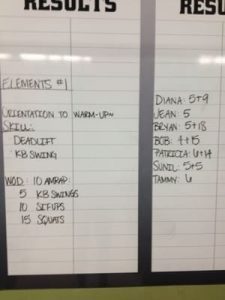 RESULTS
ELEMENTS #1
ORIENTATION TO WARM-UP
SKILL:
DEADLIFT
KB SWING
WOD: 10 AMRAP
5 KB SWINGS
10 SITUPS
15 SQUATS
RESU
DIANA: 5+9
JEAN: 5
BRYAN: 5+18
BOB: 4+15
PATRICIA: 6+14
SUNIL: 5+5
TAMMY: 6